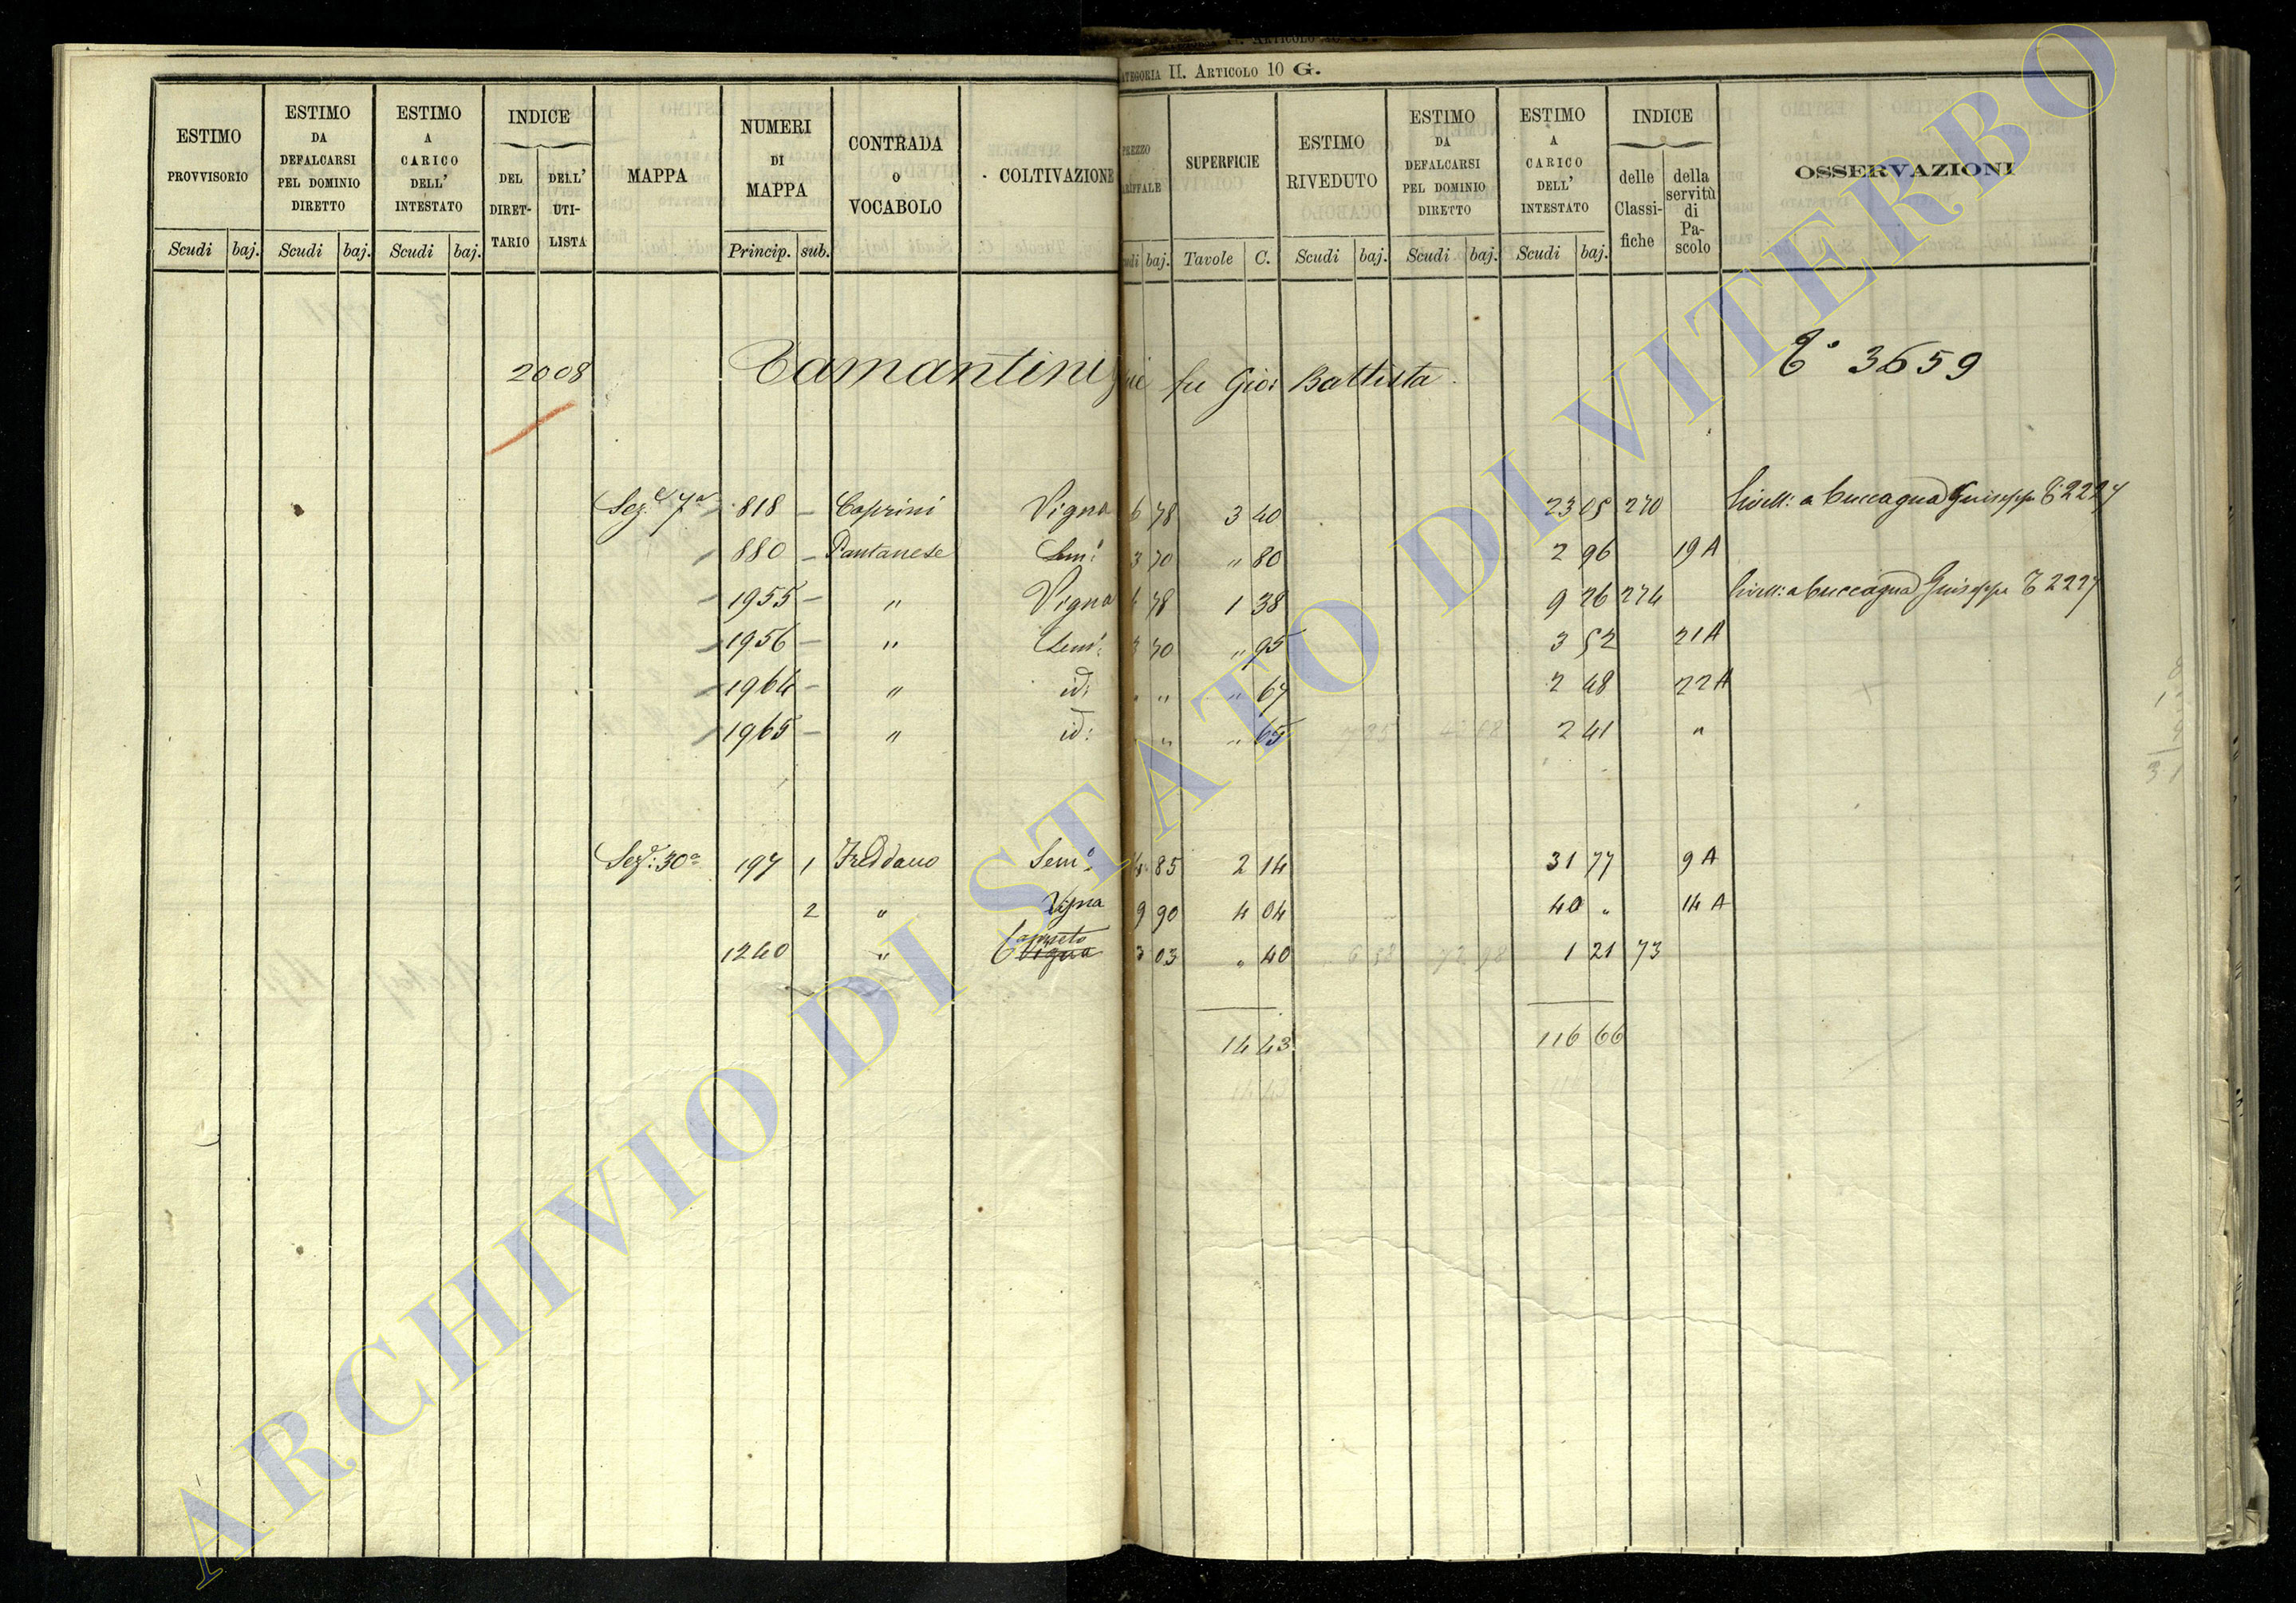 CATEGORIA II. ARTICOLO 10 G.
ESTIMO PROVVISORIO
Scudi baj.
ESTIMO DA DEFALCARSI PEL DOMINIO DIRETTO
Scudi baj.
ESTIMO A CARICO DELL' INTESTATO
Scudi baj.
INDICE
DEL DIRET-TARIO
DELL' UTI-LISTA
MAPPA
NUMERI DI MAPPA
Princip. sub.
CONTRADA O VOCABOLO
COLTIVAZIONE
PREZZO
baj.
SUPERFICIE
Tavole C.
ESTIMO RIVEDUTO
Scudi baj.
ESTIMO DA DEFALCARSI PEL DOMINIO DIRETTO
Scudi baj.
ESTIMO A CARICO DELL' INTESTATO
Scudi baj.
INDICE
delle Classi-fiche
della servitù di Pa-scolo
OSSERVAZIONI
2008 Tamantini fu Gio: Battista T° 3659
Sez.e 7a 818 – Caprini Vigna 6 78 3 40 23 05 270 livell: a Buccagna Giuseppe T° 2227
880 – Pantanese Sem: 3 70 " 80 2 96 19 A
1955 – " Vigna 78 1 38 9 26 274 livell: a Buccagna Giuseppe T 2227
1956 – " Sem: 3 70 " 95 3 52 21 A
1964 – " id: " " " 67 2 48 22 A
1965 – " id: " " " 65 2 41 "
Sez.e: 30a 197 1 Freddano Sem.o 85 2 14 31 77 9 A
2 " Vigna 9 90 4 04 40 " 14 A
1240 " Canneto Vigna 3 03 " 40 1 21 73
14 43 116 66
ARCHIVIO DI STATO DI VITERBO